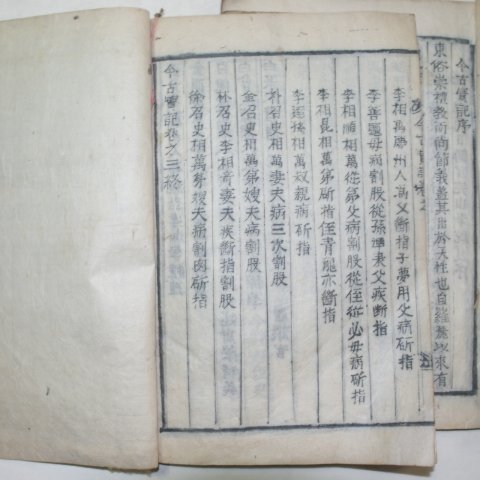 今古實記序
東俗崇禮敎術尙節義盖其由於天性也自羅麗以來有
今古實記卷之
李相萬廣州人爲父斷指子夢用父病斫指
李善暹母病割股從孫準表父疾斷指
李相順相萬從弟父病割股從侄從必母病斫指
李相昆相萬弟斫指侄青龍亦斷指
李相萬叔親病斫指
朴召史相萬妻夫病三次割股
金召史相萬弟嫂夫病割股
林召史李相奇妻夫疾斷指割股
徐召史相萬弟嫂夫病割肉斫指
今古實記卷之三終